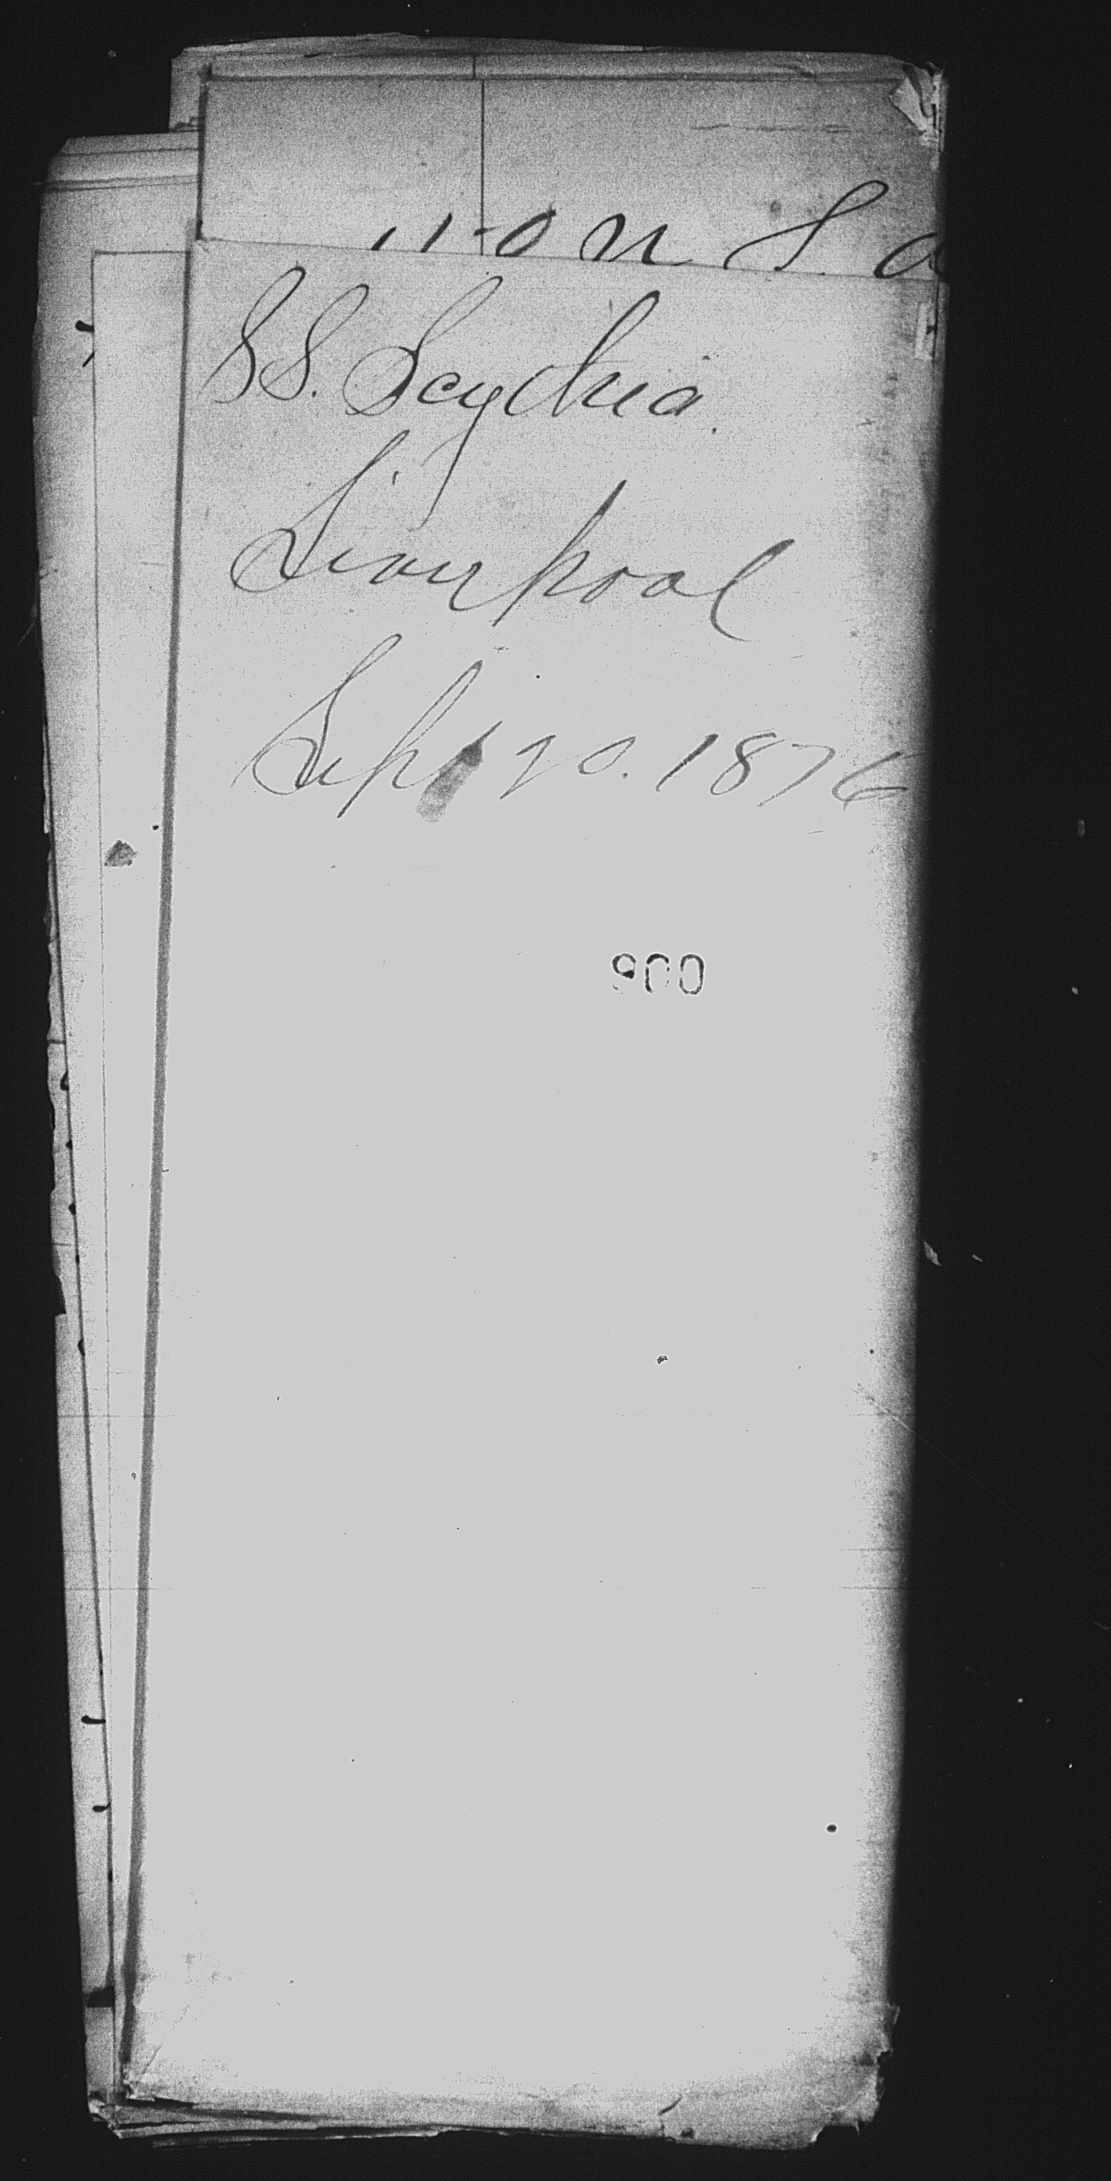 SS. Scythia.
Liverpool
Sept 20. 1876
900